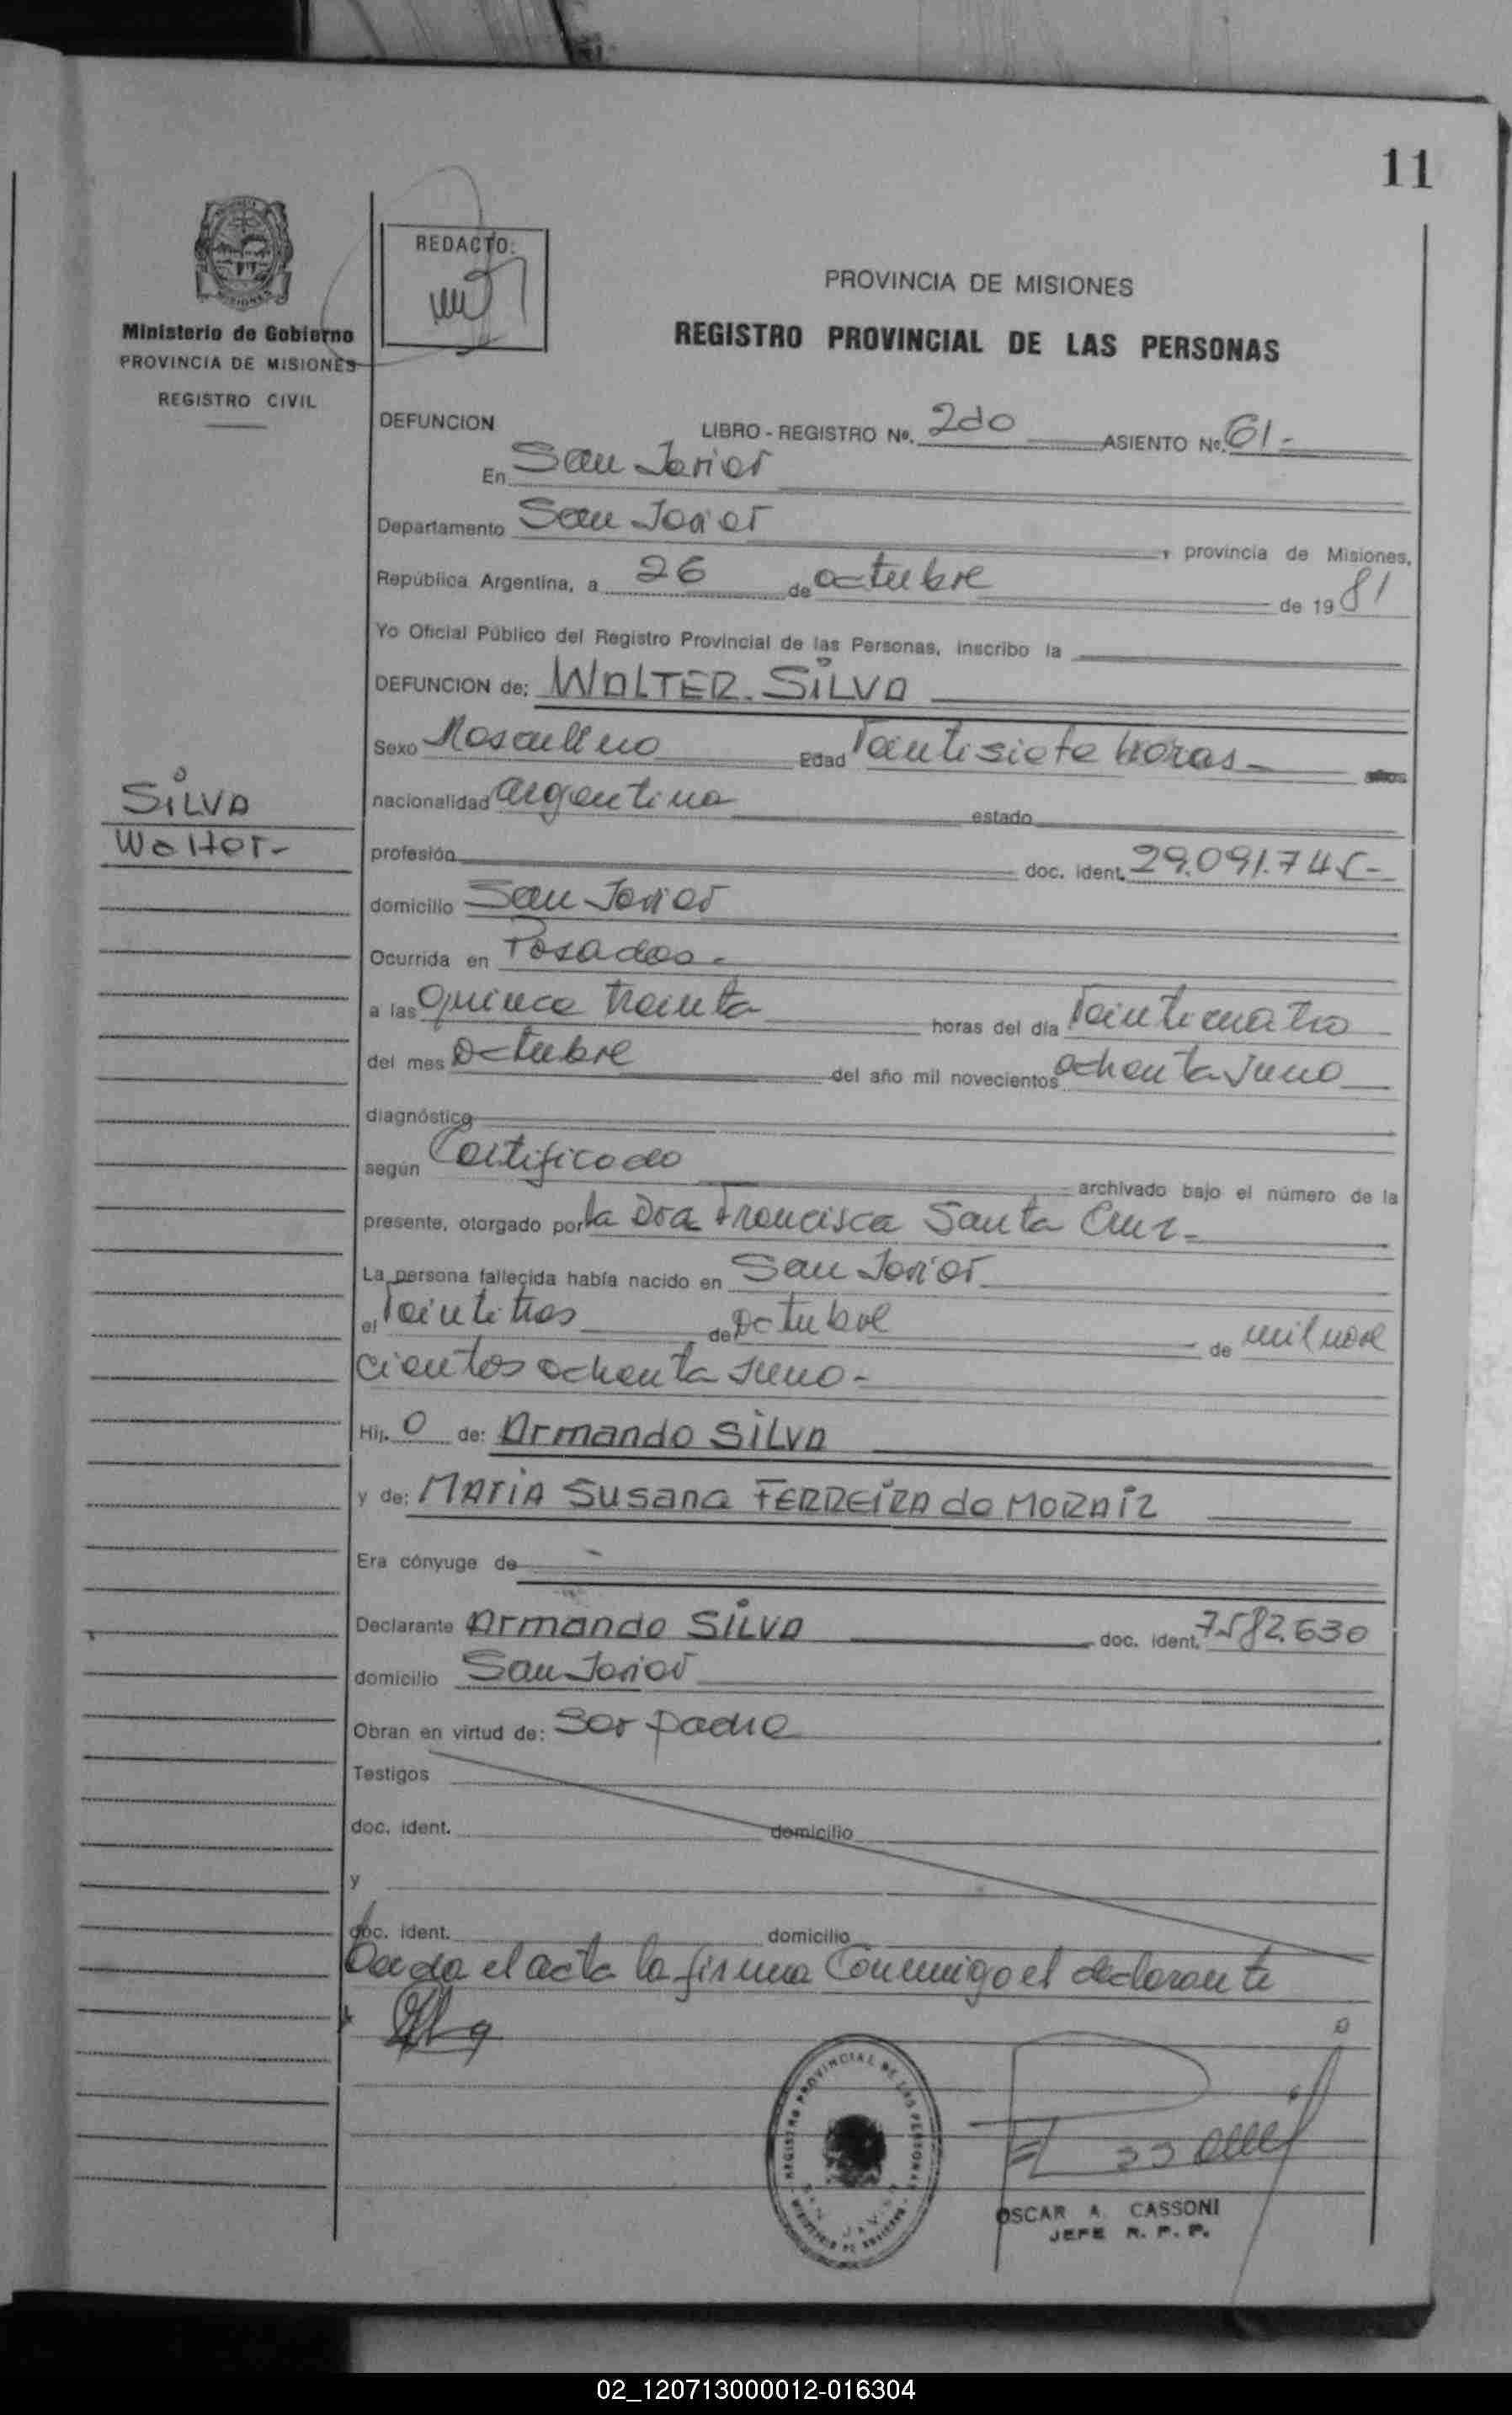 11
REDACTO:
PROVINCIA DE MISIONES
Ministerio de Gobierno
PROVINCIA DE MISIONES
REGISTRO CIVIL
REGISTRO PROVINCIAL DE LAS PERSONAS
DEFUNCION LIBRO - REGISTRO Nº. 2do ASIENTO Nº. 61.-
En San Javier
Departamento San Javier , provincia de Misiones,
República Argentina, a 26 de octubre de 1981
Yo Oficial Público del Registro Provincial de las Personas, inscribo la
DEFUNCION de: WALTER SILVA
Sexo Masculino Edad Veintisiete horas - años
SILVA
Walter-
nacionalidad argentina estado
profesión doc. ident. 29.091.745-
domicilio San Javier
Ocurrida en Posadas.
a las quince treinta horas del día Veinticuatro
del mes octubre del año mil novecientos ochenta y uno
diagnóstico
según Certificado archivado bajo el número de la
presente, otorgado por la Dra Francisca Santa Cruz-
La persona fallecida había nacido en San Javier
el Veintitres de octubre de mil nove
cientos ochenta y uno-
Hij. o de: Armando SILVA
y de: MARIA Susana FERREIRA do MORAIZ
Era cónyuge de
Declarante Armando SILVA doc. ident. 7.582.630
domicilio San Javier
Obran en virtud de: Ser padre
Testigos
doc. ident. domicilio
y
doc. ident. domicilio
Leida el acta la firma Conmigo el declarante
REGISTRO PROVINCIAL DE LAS PERSONAS
SAN JAVIER
OSCAR A. CASSONI
JEFE R. P. P.
02_120713000012-016304